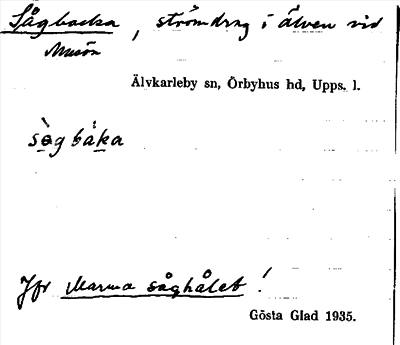 Sågbacka, strömdrag i älven vid
Musön
Älvkarleby sn, Örbyhus hd, Upps. l.
sògbáka
Jfr Marma såghålet!
Gösta Glad 1935.